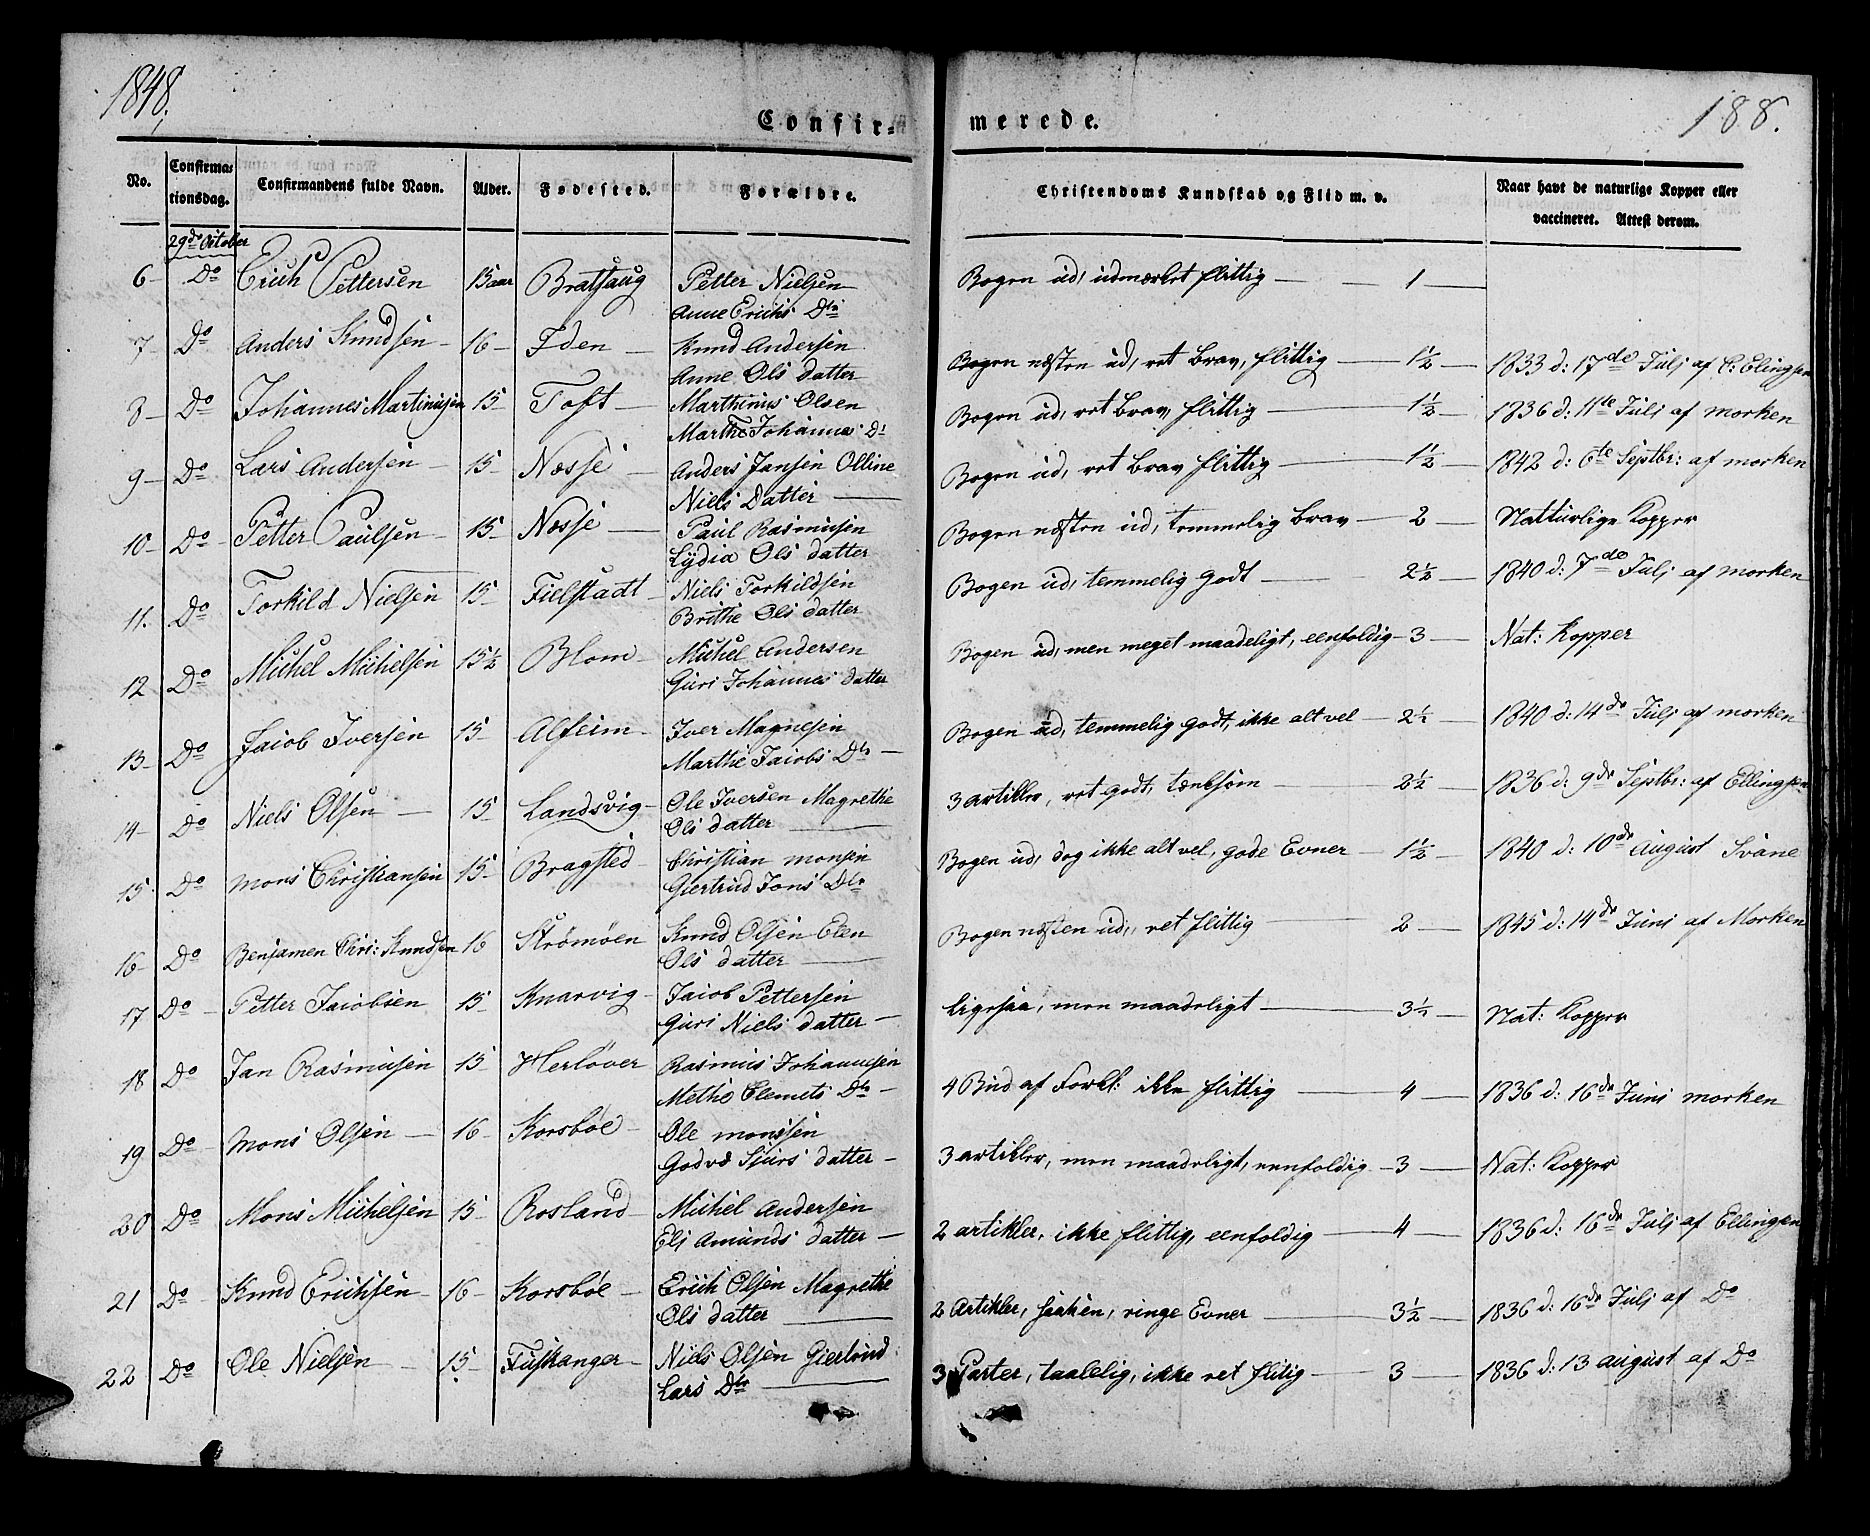 1848.
188.
Confir-
merede.
No.
Confirma-
tionsdag.
Confirmandens fulde Navn.
Alder.
Fødested.
Forældre.
Christendoms Kundskab og Flid m. v.
Naar havt de naturlige Kopper eller
vaccineret. Attest derom.
29de October
6- Do Erich Pettersen 15 aar Brathaug Petter Nielsen Bogen ud, udmærket flittig — 1 —
Anne Erichs Dtr
7- Do Anders Knudsen - 16 - Iden - Knud Andersen Bogen næsten ud, ret brav, flittig — 1½ — 1833 d: 17de Julj af E: Elingsen
Anne Ols datter
8- Do Johannes Martinusen 15 Toft - Marthinus Olsen Bogen ud, ret brav, flittig — 1½ — 1836 d: 11te Julj af morken
Marthe Johannes Dr
9- Do Lars Andersen - 15- Næsse - Anders Jansen Olline Bogen ud, ret brav flittig — 1½ — 1842 d: 6te Septbr: af morken
Niels Datter —
10- Do Petter Paulsen - 15- Næsse - Paul Rasmusen Bogen næsten ud, temmelig brav — 2 — Natturlige Kopper
Lydia Ols datter
11. Do Torkild Nielsen 15- Fielstadt - Niels Torkildsen Bogen ud, temmelig godt — 2½ — 1840 d: 7de Julj af morken
Brithe Ols datter
12 Do Michel Michelsen 15½ Blom - Michel Andersen Bogen ud, men meget maadeligt, eenfoldig - 3 — Nat: Kopper
Guri Johannes datter
13- Do Jacob Iversen 15- Alfeim - Iver Magnesen Bogen ud, temmelig godt, ikke alt vel — 2½ — 1840 d: 14de Julj af morken
Marthe Jacobs Dtr —
14- Do Niels Olsen - 15 Landsvig - Ole Iversen Magrethe 3 artikler, ret godt, tænksom — 2½ — 1836 d: 9de Septbr: af Ellingsen
Ols datter —
15. Do Mons Christiansen 15- Bragsted - Christian monsen Bogen ud, dog ikke alt vel, gode Evner — 1½ — 1840 d: 10de august Svane
Giertrud Jons Dtr
16- Do Benjamen Chri: Knudsen 16 Strømøen Knud Olsen Elen Bogen næsten ud, ret flittig — 2 — 1845 d: 14de Juni af Morken
Ols datter —
17 Do - Petter Jacobsen 15- Knarvig - Jacob Pettersen Ligesaa, men maadeligt — 3½ — Nat: Kopper
Guri Niels datter —
18 Do Jan Rasmusen 15- Herløver Rasmus Johannesen 4 Bud af Forkl: ikke flittig — 4 — 1836 d: 16de Juni morken
Methe Clemets Dtr -
19 Do - Mons Olsen — 16- Korsbøe - Ole monssen 3 artikler, men maadeligt, eenfoldig - 3 — Nat: Kopper
Sjurs datter —
20 Do - Mons Michelsen 15- Rosland - Michel Andersen 2 artikler, ikke flittig, eenfoldig — 4 — 1836 d: 16de Julj af Ellingsen
Elj Amunds datter —
21 Do - Knud Erichsen - 16- Korsbøe - Erich Olsen Magrethe 2 Artikler, ringe Evner — 3½ — 1836 d: 16de Julj af Do
Ols datter —
22 Do - Ole Nielsen - 15- Fuskanger - Niels Olsen 3 Parter, taalelig, ikke ret flitig — 3 — 1836 d: 13 august af Do
Lars Dtr —